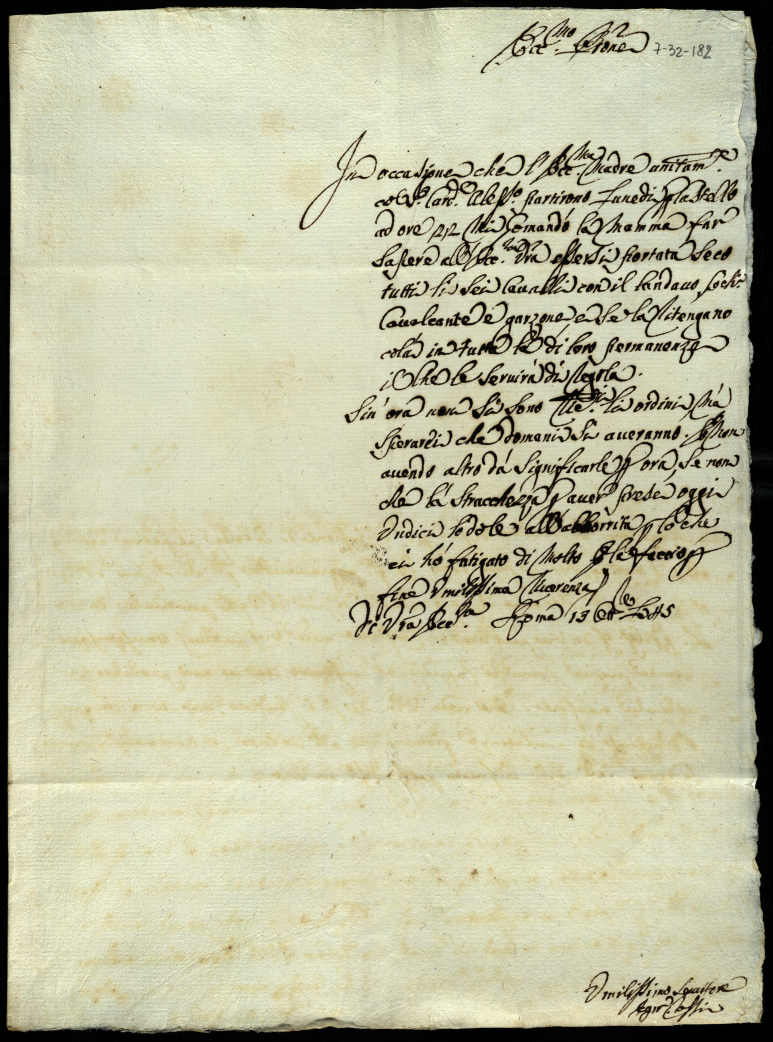 Ecc.mo Prone 7-32-182
In occasione che l'Ecc.ma Madre unitam.e
co'l S.r Card.e Aless.o partirono Lunedi p Castello
ad ore 212 Mi Comandò la Mamma far
sapere all' Ecc.za Vra essersi portata seco
tutti li sei Cavalli con il landau
Cavalcante e garzone e se la Ritengano
colà in tutto di loro permanenza
il che le servirà di Regola.
Sin' ora non si sono li ordini Mà
sperarei che domani si averanno. non
avendo altro dà significarle p ora, se non
che la Stracchezza p aver prese oggi
Undici lodole all'
ci hò fatigato di Molto faccio p
fine Umilissima Riverenza
Di Vra Ecc.za Roma 13
Umilissimo Servitore